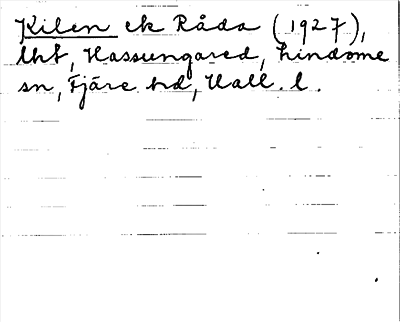 Kilen ek Råda (1927),
lht, Hassungared, Lindome
sn, Fjäre hd, Hall. l.